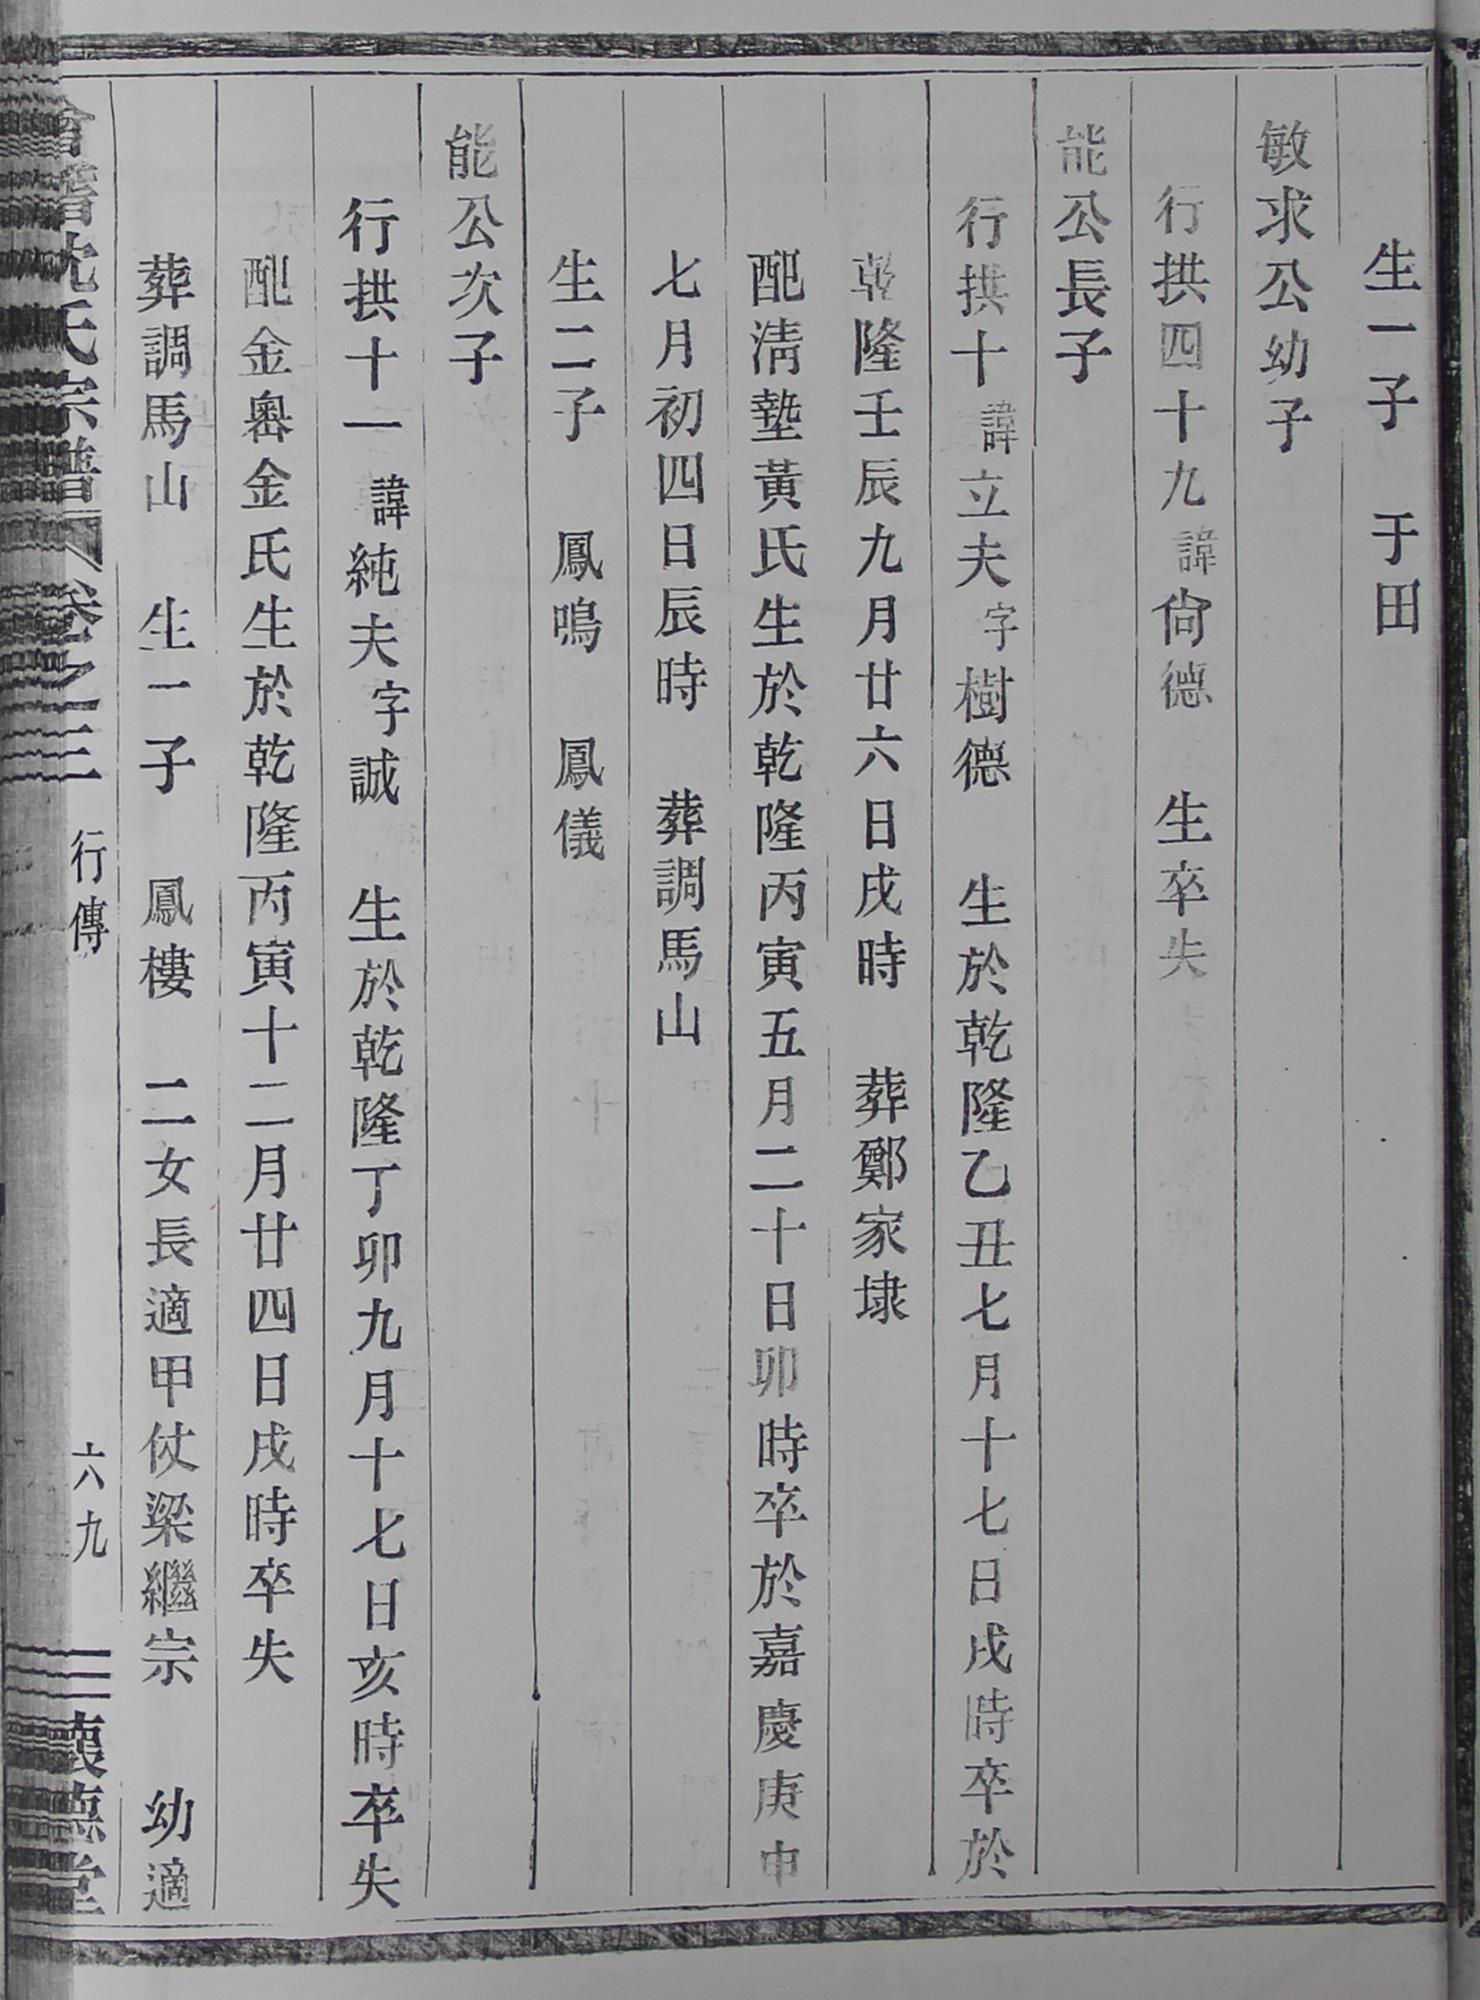 生一子　于田
敏求公幼子
行拱四十九諱尙德　生卒失
能公長子
行拱十諱立夫字樹德　生於乾隆乙丑七月十七日戌時卒於
乾隆壬辰九月廿六日戌時　葬鄭家埭
配淸墊黃氏生於乾隆丙寅五月二十日卯時卒於嘉慶庚申
七月初四日辰時　葬調馬山
生二子　鳳鳴　鳳儀
能公次子
行拱十一諱純夫字誠　生於乾隆丁卯九月十七日亥時卒失
配金嶴金氏生於乾隆丙寅十二月廿四日戌時卒失
葬調馬山　生一子　鳳樓　二女長適甲仗梁繼宗　幼適
會稽沈氏宗譜　卷之三　行傳　六九　懷德堂